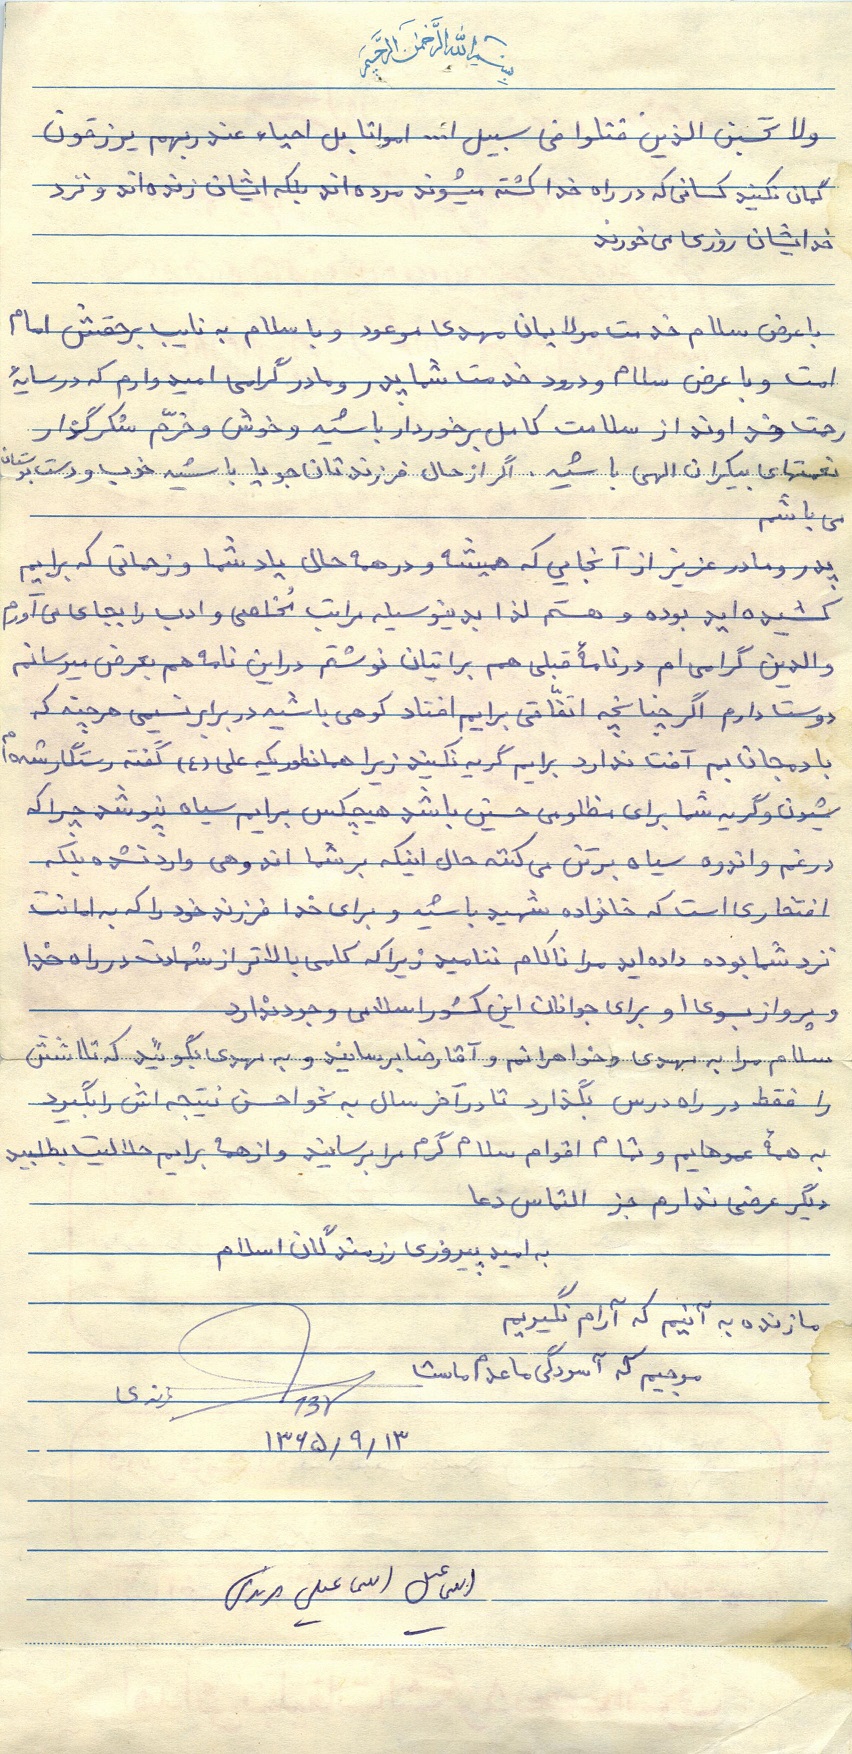 بسم الله الرحمن الرحیم
ولا تحسبن الذین قتلوا فی سبیل الله امواتا بل احیاء عند ربهم یرزقون
گمان نکنید کسانی که در راه خدا کشته میشوند مرده اند بلکه ایشان زنده اند و نزد
خدایشان روزی می خورند
با عرض سلام خدمت مولایمان مهدی موعود و با سلام به نایب برحقش امام
امت و با عرض سلام و درود خدمت شما پدر و مادر گرامی امیدوارم که در سایهٔ
رحمت خداوند از سلامت کامل برخوردار باشید و خوش و خرّم شکرگزار
نعمتهای بیکران الهی باشید. اگر از حال فرزندتان جویا باشید خوب و دست بوستان
می باشم
پدر و مادر عزیز از آنجایی که همیشه و در همه حال یاد شما و زحماتی که برایم
کشیده اید بوده و هستم لذا بدینوسیله مراتب مُخلصی و ادب را بجای می آورم
والدین گرامی ام در نامهٔ قبلی هم برایتان نوشتم در این نامه هم بعرض میرسانم
دوست دارم اگر چنانچه اتفّاقی برایم افتاد کوهی باشید در برابر نسیمی هر چند که
بادمجان بم آفت ندارد برایم گریه نکنید زیرا همانطوریکه علی (ع) گفته رستگار شده ام
شیون و گریه شما برای مظلومی حسین باشد هیچکس برایم سیاه نپوشد چرا که
در غم و اندوه سیاه برتن می کنند حال اینکه بر شما اندوهی وارد نشده بلکه
افتخاری است که خانواده شهید باشید و برای خدا فرزند خود را که به امانت
نزد شما بوده داده اید مرا ناکام ننامید زیرا که کامی بالاتر از شهادت در راه خدا
و پرواز بسوی او برای جوانان این کشور اسلامی وجود ندارد
سلام مرا به مهدی و خواهرانم و آقا رضا برسانید و به مهدی بگوئید که تلاشش
را فقط در راه درس بگذارد تا در آخر سال به نحو احسن نتیجه اش را بگیرد
به همهٔ عموهایم و تمام اقوام سلام گرم مرا برسانید و از همه برایم حلالیت بطلبید
دیگر عرضی ندارم جز التماس دعا
به امید پیروزی رزمندگان اسلام
ما زنده به آنیم که آرام نگیریم
موجیم که آسودگی ما عدم ماست
۱۳۶۵/۹/۱۳
اسماعیل اسماعیلی